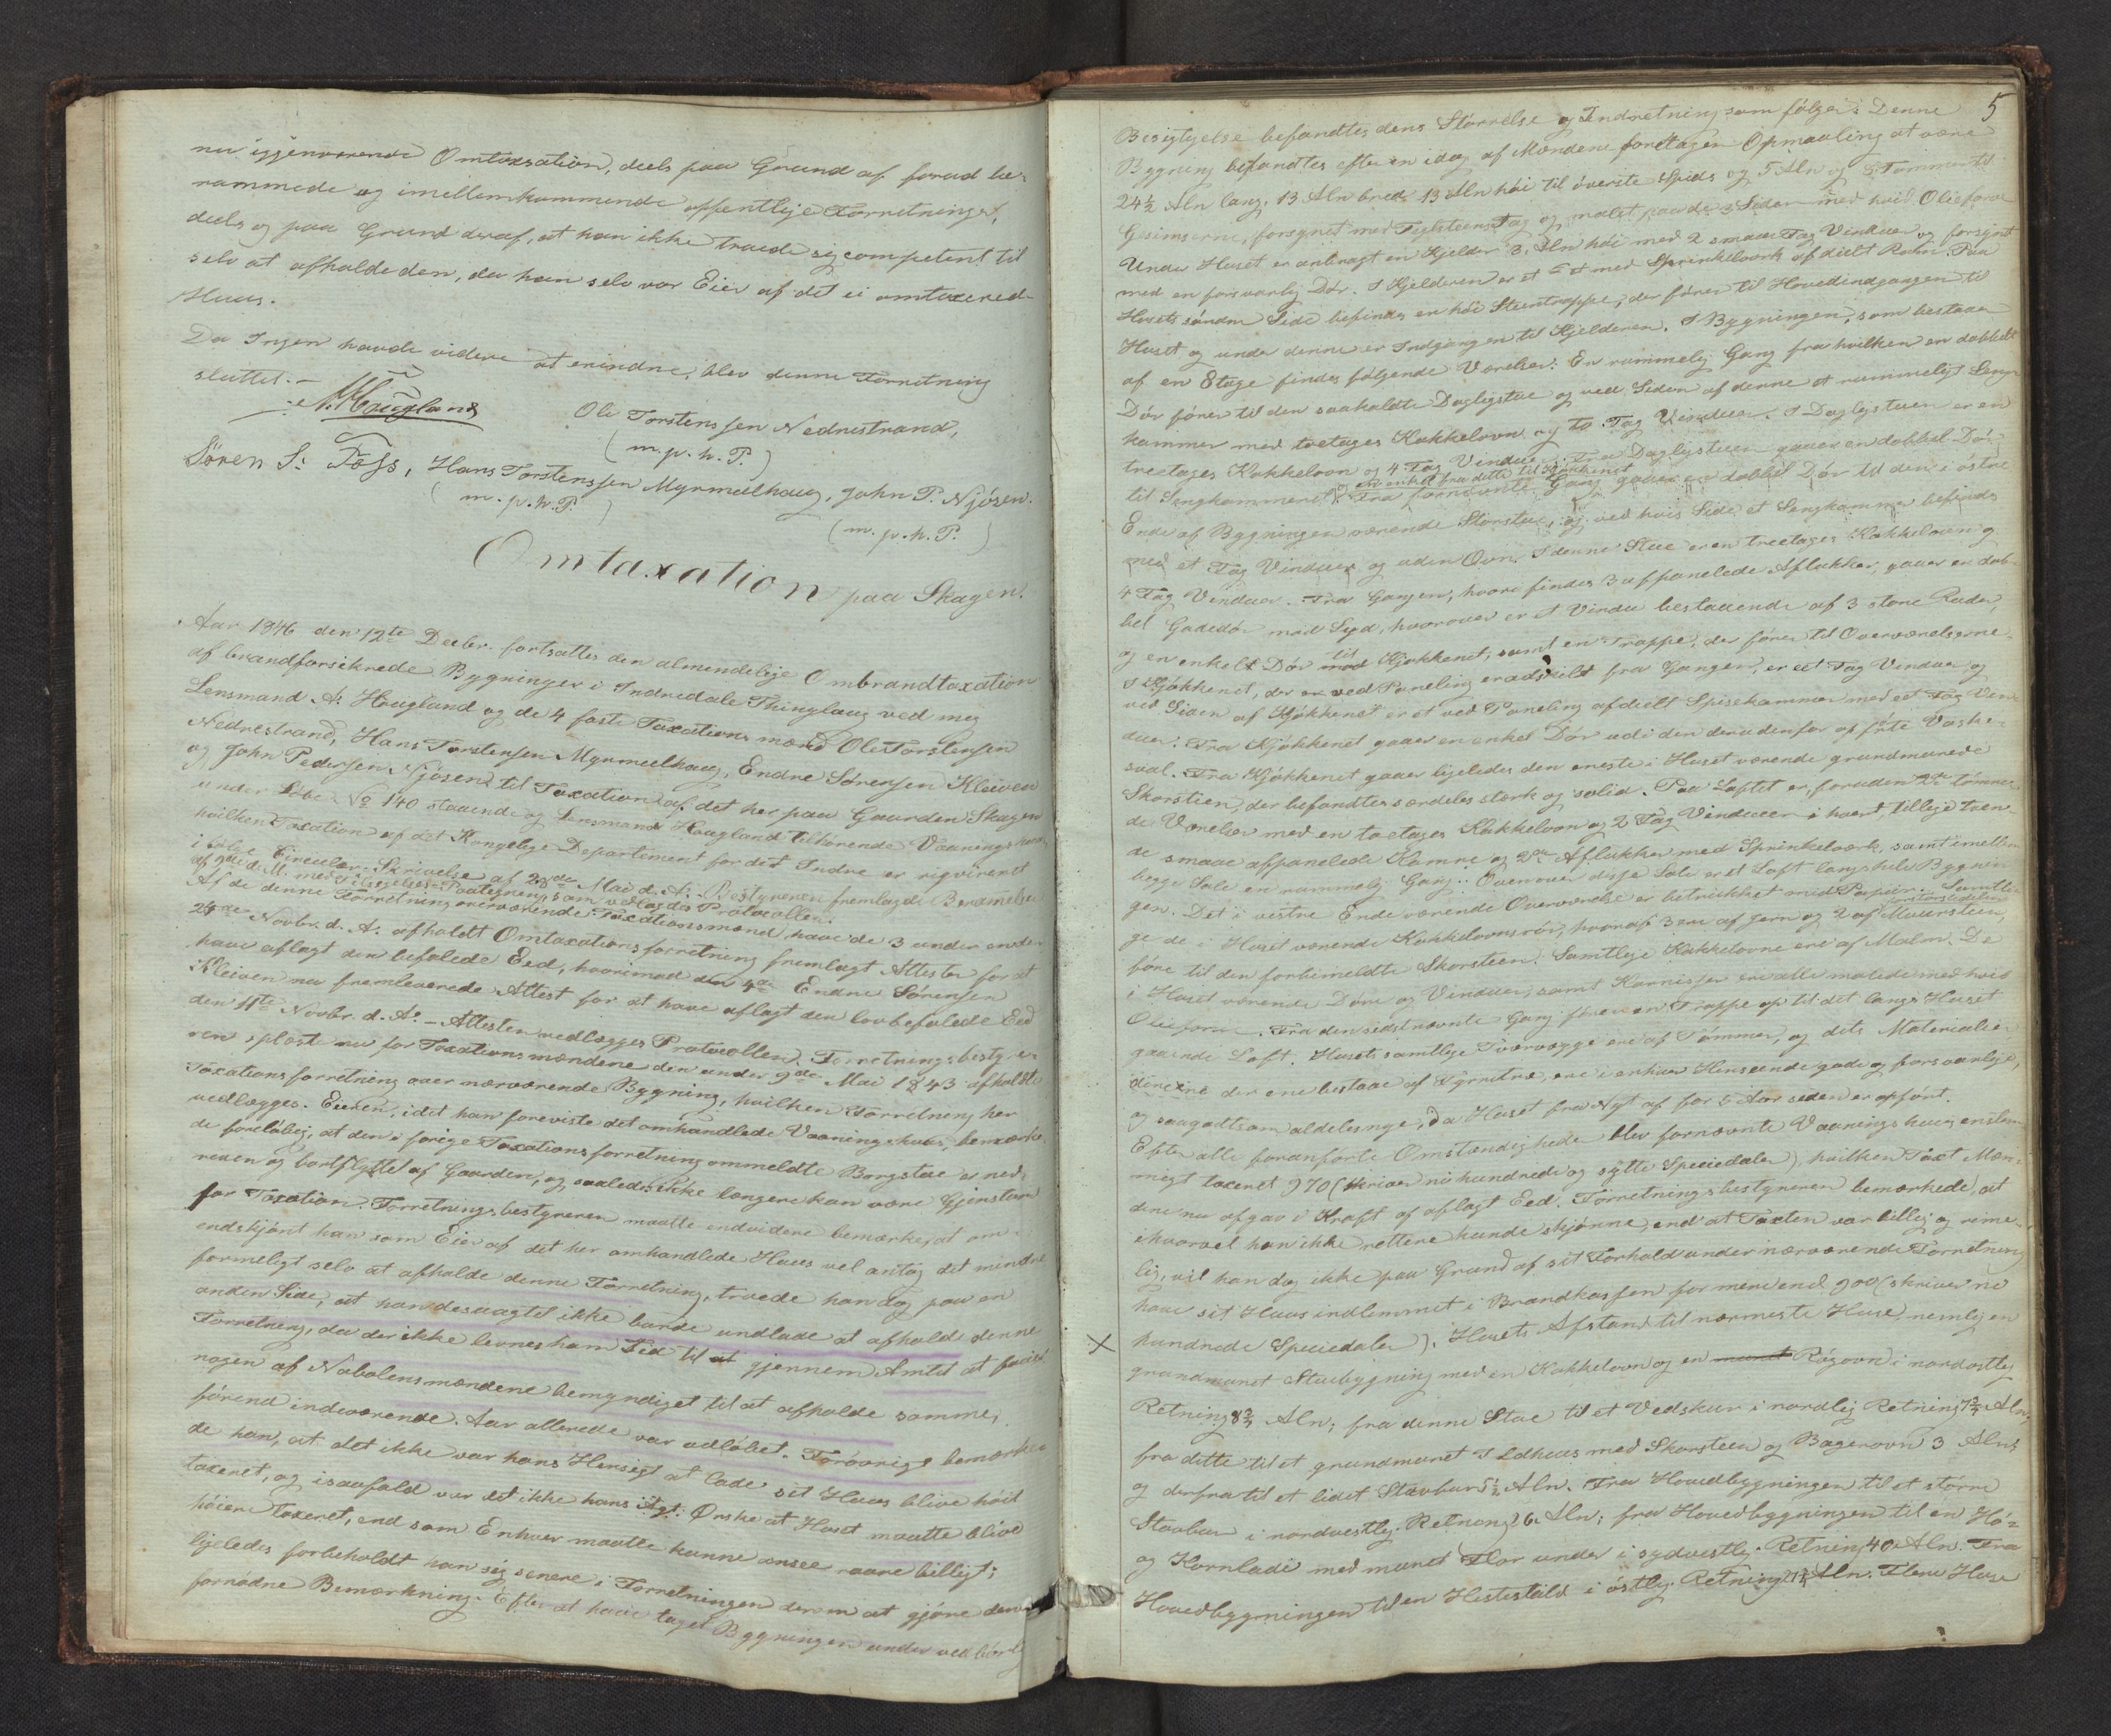 nu igjenværende Omtaxsation, deels paa Grund af forud be-
rammede og imellemkommende offentlige Forretninger,
deels og paa Grund deraf, at han ikke troede sig competent til
selv at afholde den, da han selv var Eier af det ei omtaxered-
Huus.
Da Ingen havde videre at erindre, blev denne Forretning
sluttet.-
A. Hougland
Ole Torstensen Nedrestrand,
(m. p. h. P.)
Sören S: Foss, Hans Torstenssen Myrmeelhaug, John P. Njösen.
(m. p. h. P.)
(m. p. h. P.)
Omtaxation paa Skagen.
Aar 1846 den 12te Decbr. fortsattes den almindelige Ombrandtaxation
af brandforsikrede Bygninger i Indredale Thinglaug ved mig
Lensmand A. Hougland og de 4 faste Taxationsmænd Ole Torstensen
Nedrestrand, Hans Torstensen Myrmeelhaug, Endre Sörensen Kleiven
og John Pedersen Njösen til Taxation af det her paa Gaarden Skagen
under Löbe No 140 staaende og Lensmand Hougland tilhörende Vaaningshuus
hvilken Taxation af det Kongelige Departement for det Indre er rigvireret
i fölge Circulær-Skrivelse af 28de Mai d. A. Bestyreren fremlagde Berammelse
af 9de d. M. med Tilsigelses-Paategning, som vedlagdes Protocollen.
Af de denne Forretning overværende Taxationsmænd, have de 3 under en den
24de Novbr. d. A. afholdt Omtaxationsforretning fremlagt Attester for at
have aflagt den befalede Eed, hvorimod den 4de Endre Sörensen
Kleiven nu fremleverede Attest for at have aflagt den lovbefalede Eed
den 11te Novbr. d. A. - Attesten vedlægges Protocollen. Forretningsbesty-
ren oplæste nu for Taxationsmændene den under 9de Mai 1843 afholdte
Taxationsforretning over nærværende Bygning, hvilken Forretning her
vedlægges. Eieren, idet han foreviste det omhandlede Vaaningshuus, bemærke-
de foreløbig, at den i forige Taxationsforretning ommeldte Borgstue er ned-
reven og bortflyttet af Gaarden, og saaledes ikke længere kan være Gjenstand
for Taxation. Forretningsbestyreren maatte endvidere bemærke, at om-
endskjönt han som Eier af det her omhandlede Huus vel antog det mindre
formeligt selv at afholde denne Forretning, troede han dog paa en
anden Side, at han desuagtet ikke burde undlade at afhold denne
Forretning, da der ikke levnes ham Tid til at gjennem Amtet at faae
nogen af Nabolensmændene bemyndiget til at afholde samme,
förend indeværende Aar allerede var udlöbet. Forövrigt bemærke-
de han, at det ikke var hans Hensigt at lade sit Huus blive höit
taxeret, og isaafald var det ikke hans Agt: Ønske at Huset maatte blive
höiere taxeret, end som Enhver maatte kunne ansee være billigt;
ligeledes forbeholdt han sig senere i Forretningen derom at gjöre den
fornödne Bemærkning. Efter at have taget Bygningen under vedbörlig
5
Besigtigelse befandtes dens Störrelse og Indretning som fölger: Denne
Bygning befandtes efter en idag af Mændene foretagen Opmaaling at være
24½ Aln lang, 13 Aln bred, 13 Aln höi til överste Spids og 5 Aln og 5 Tommer til
Gesimserne, forsynet med Teglsteenstag og malet paa de 3 Sider med hvid Oliefarve
Under Huset er anbragt en Kjelder 3. Aln höi med 2 smaae Fag Vinduer og forsynt
med en forsvarlig Dör. I Kjelderen er et med Sprinkelværk afdeelt Rohm. Paa
Husets söndre Side befindes en höi Steentrappe, der förer til Hovedindgangen til
Huset og under denne er Indgangen til Kjelderen. I Bygningen, som bestaaer
af en Etage findes fölgende Værelser: En rummelig Gang fra hvilken en dobbelt
Dör förer til den saakaldte Dagligstue og ved Siden af denne et rummeligt Senge-
kammer med toetages Kakkelovn og to Fag Vinduer. I Dagligstuen er en
treetages Kakkelovn og 4 Fag Vinduer. Fra Dagligstuen gaaer en dobbel Dör
til Sengkammeret og en enkel fra dette til Kjökkenet. Fra fornævnte Gang gaaer en dobbel Dör til den i östre
Ende af Bygningen værende Storstue, og ved hvis Side et Sengkammer befindes
med et Fag Vinduer og uden Ovn. I denne Stue er en treetages Kakkelovn og
4 Fag Vinduer. Fra Gangen, hvori findes 3 afpanelede Aflukker, gaaer en dob-
bel Gadedör mod Syd, hvorover er et Vindue bestaaende af 3 store Ruder,
og en enkelt Dör til Kjökkenet, samt en Trappe, der förer til Overværelserne.
I Kjökkenet, der er ved Paneling er adskilt fra Gangen, er eet Fag Vinduer og
ved Siden af Kjökkenet er et ved Paneling afdeelt Spisekammer med eet Fag Vin-
duer. Fra Kjökkenet gaaer en enkel Dör ud i den derudenfor opförte Vaske-
sval. Fra Kjökkenet gaaer ligeledes den eneste i Huset værende grundmurede
Skorsteen, der befandtes særdeles stærk og solid. Paa Loftet er, foruden 2de tömre-
de Værelser med en toetages Kakkelovn og 2 Fag Vinduer i hvert, tillige tven-
de smaae afpanelede Kamre og 2de Aflukker med Sprinkelværk, samt imellem
begge Sale en rummelig Gang. Ovenover disse Sale er et Loft langs hele Bygnin-
gen. Det i vestre Ende værende Overværelse er betrukket med Papiir. Samtli-
ge de i Huset værende Kakkelovnsrör, hvoraf 3 ere af Jern og 2 af Muursteen,
före til den forbemeldte Skorsteen. Samtlige Kakkelovne ere af Malm. De
i Huset værende Döre og Vinduer, samt Karnisser ere alle malede med hvid
Oliefarve. Fra den sidstnævnte Gang förer en Trappe op til det langs Huset
gaaende Loft. Husets samtlige Tværvægge ere af Tömmer, og dets Materialier
der ene bestaae af Fyrretræ, ere i enhver Henseende gode og forsvarlige,
og saagodtsom aldeles nye, da Huset fra Nyt af for 5 Aar siden er opfört.
Efter alle foranförte Omstændigheder blev fornævnte Vaaningshuus enstem-
migt taxeret 970 (skriver nihundrede og sytti Speciedaler), hvilken Taxt Mæn-
dene nu afgav i Kraft af aflagt Eed. Forretningsbestyreren bemærkede, at
ihvorvel han ikke rettere kunde skjönne, end at Taxten var billig og rime-
lig, vil han dog ikke paa Grund af sit Forhold under nærværende Forretning
have sit Huus indlemmet i Brandkassen for mere end 900 (skriver ni
hundrede Speciedaler). Husets Afstand til nærmeste Huse, nemlig en
grundmuret Stuebygning med en Kakkelovn og en muret Rögovn i nordostlig
Retning 8¾ Aln; fra denne Stue til et Vedskuur i nordlig Retning 7¾ Aln;
fra dette til et grundmuret Ildhuus med Skorsteen og Bagerovn 3 Aln;
og derfra til et lidet Stavbuur ½ Aln. Fra Hovedbygningen til et större
Stavbuur i nordvestlig Retning 6 Aln; fra Hovedbygningen til en Hö-
og Kornlade med muret Flor under i sydvestlig Retning 40 Aln. Fra
Hovedbygningen til en Hestestald i östlig Retning Aln. Flere Huse